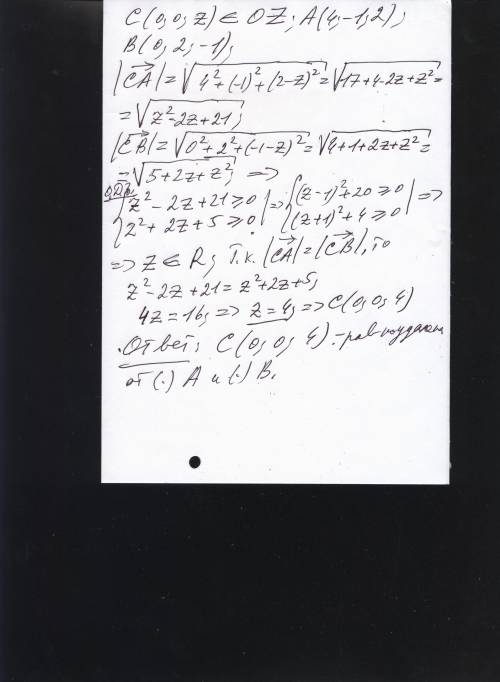 C(0; 0; z) ∈ OZ; A(4; -1; 2);
B(0; 2; -1);
|CA| = √(4² + (-1)² + (2-z)²) = √(17+4-2z+z²) =
= √(z²-2z+21);
|CB| = √(0² + 2² + (-1-z)²) = √(4+1+2z+z²) =
= √(5+2z+z²); =>
ОДЗ: { z² - 2z + 21 ≥ 0 => { (z-1)² + 20 ≥ 0 =>
{ z² + 2z + 5 ≥ 0 { (z+1)² + 4 ≥ 0
=> z ∈ R; Т.к. |CA| = |CB|, то
z² - 2z + 21 = z² + 2z + 5;
4z = 16; => z = 4; => C(0; 0; 4)
Ответ: C(0; 0; 4) -
от (.) A и (.) B.